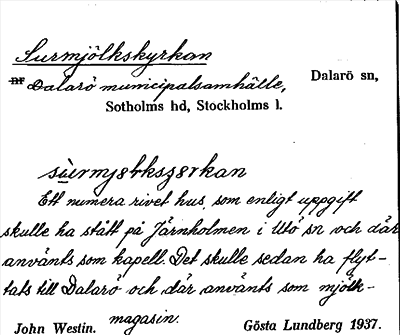 Surmjölkskyrkan
Dalarö municipalsamhälle, Dalarö sn,
Sotholms hd, Stockholms l.
Ett numera rivet hus, som enligt uppgift
skulle ha stått på Järnholmen i Utö sn och där
använts som kapell. Det skulle sedan ha flyt-
tats till Dalarö och där använts som mjölk-
magasin.
John Westin. Gösta Lundberg 1937.